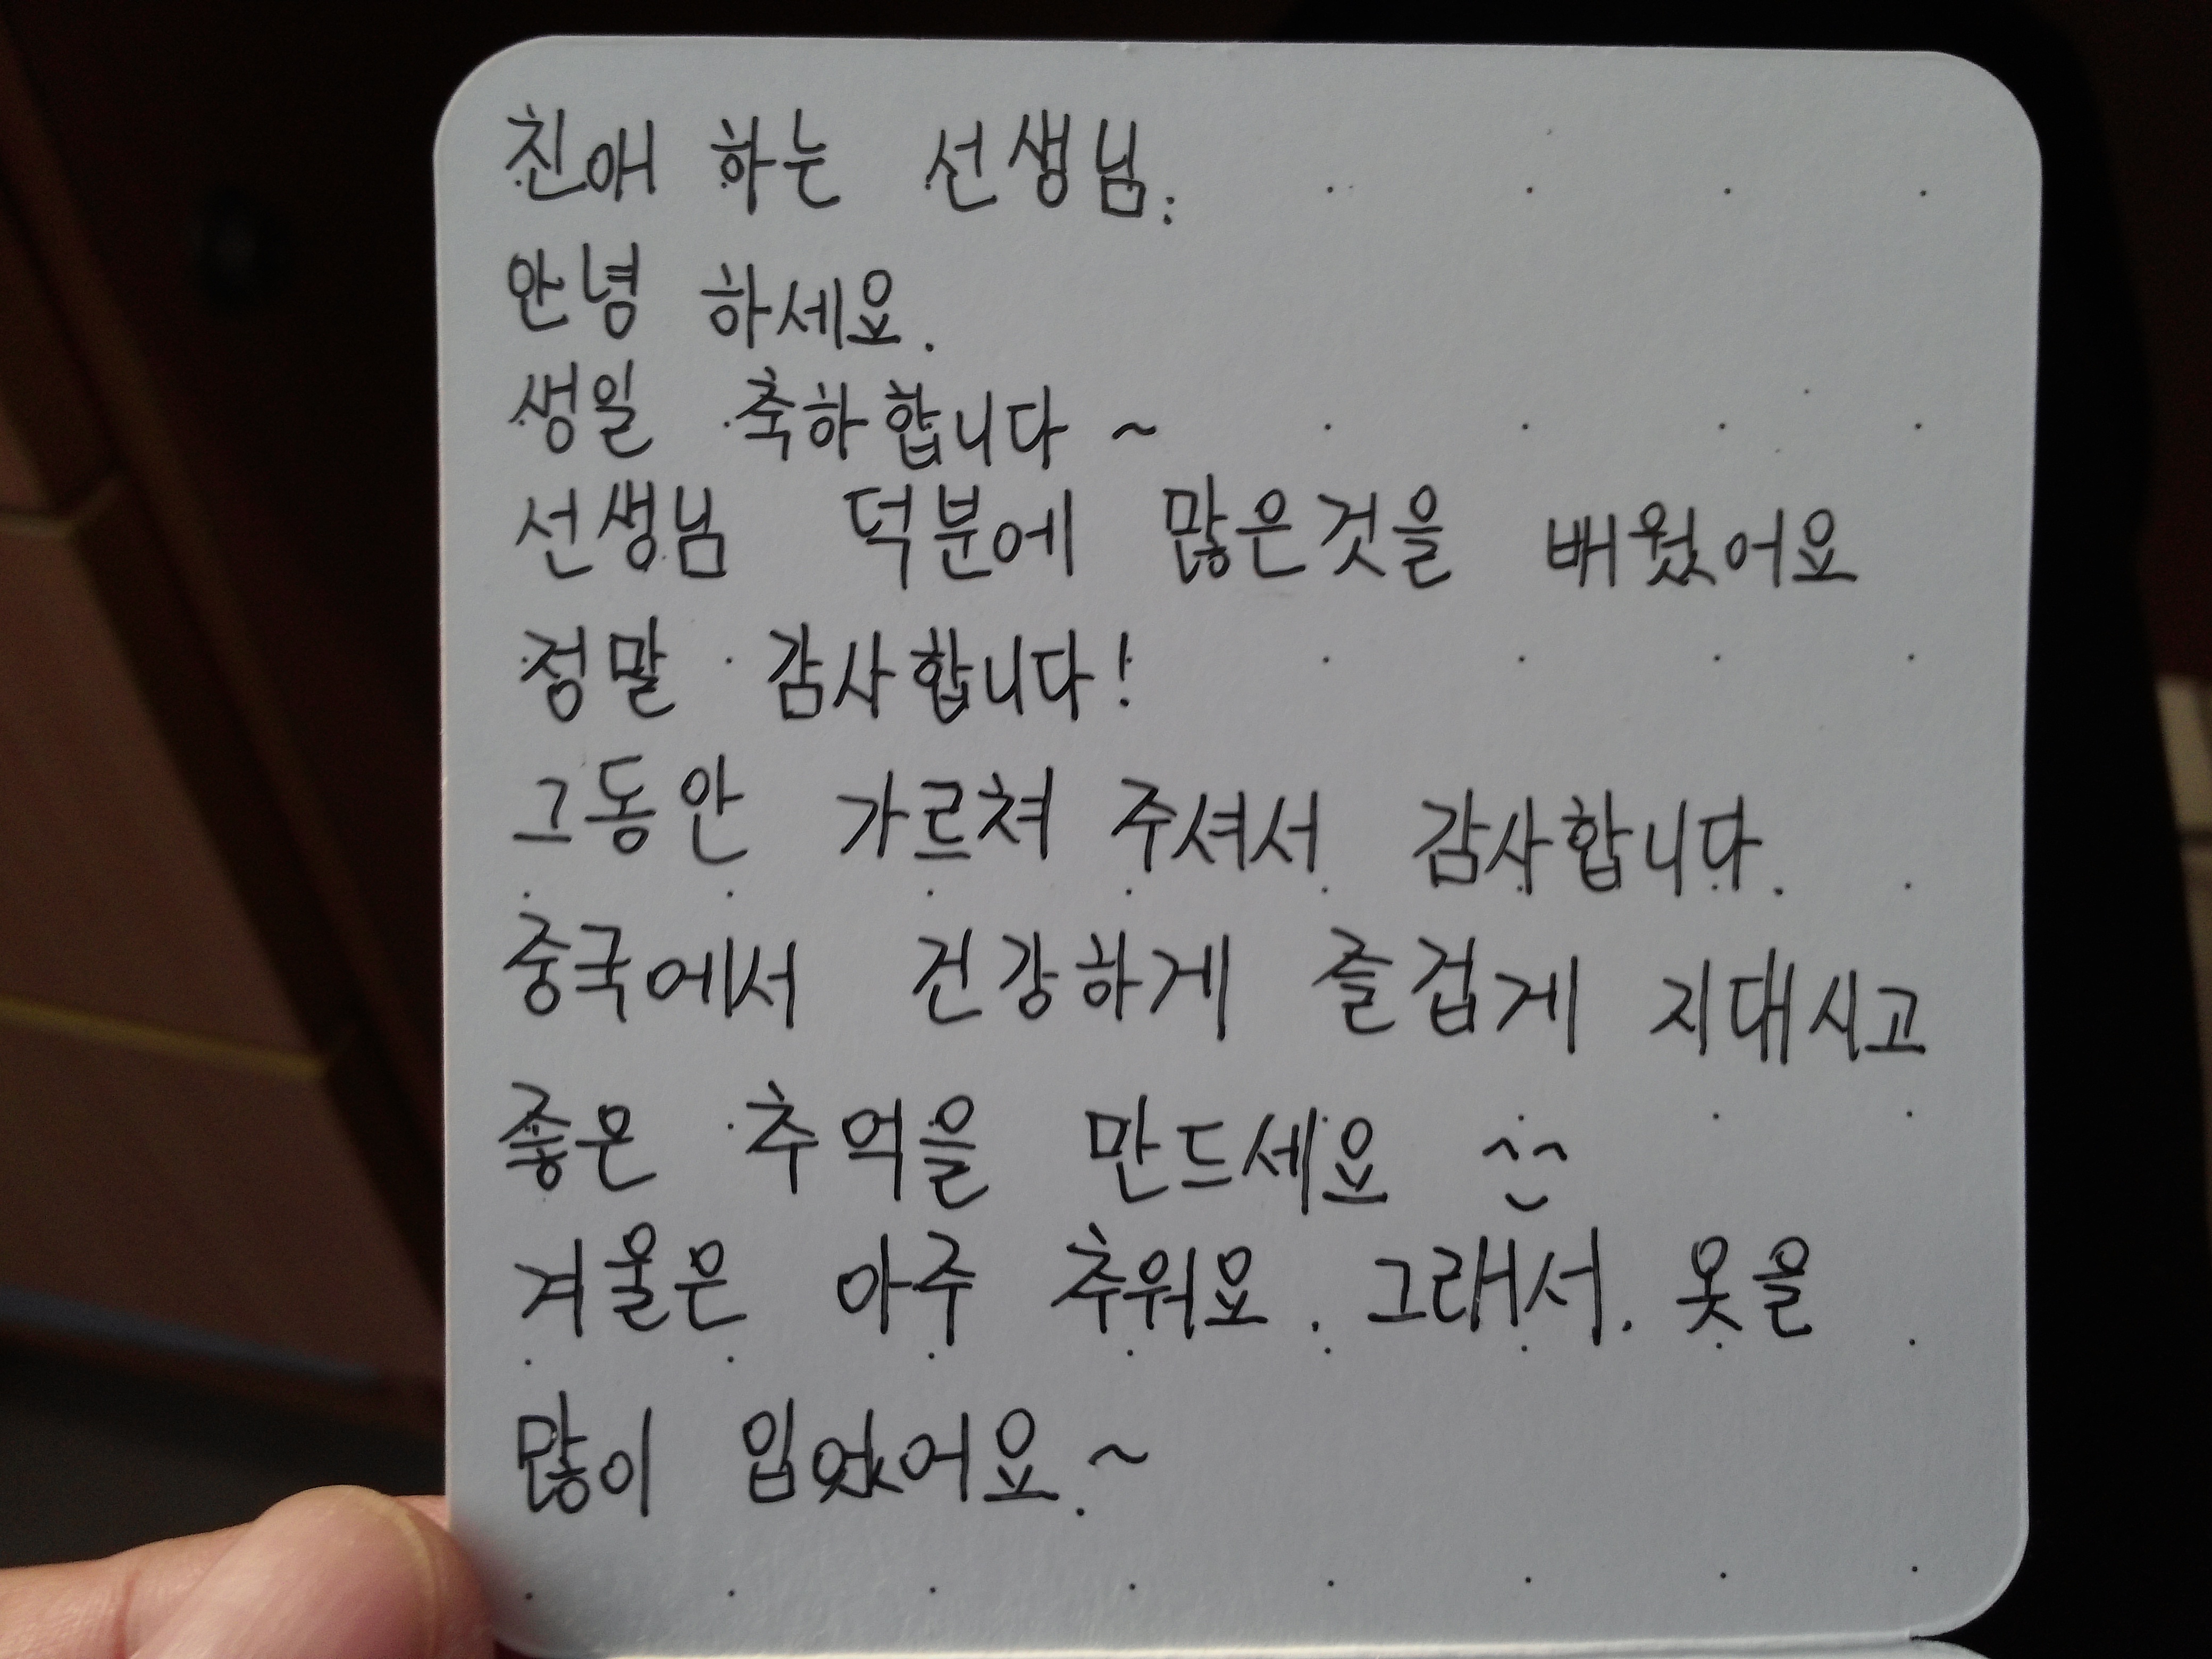 친애 하는 선생님:
안녕 하세요.
생일 축하합니다~
선생님 덕분에 많은것을 배웠어요
정말 감사합니다!
그동안 가르쳐 주셔서 감사합니다.
중국에서 건강하게 즐겁게 지대시고
좋은 추억을 만드세요 ^^
겨울은 아주 추워요. 그래서. 옷을
많이 입었어요.~